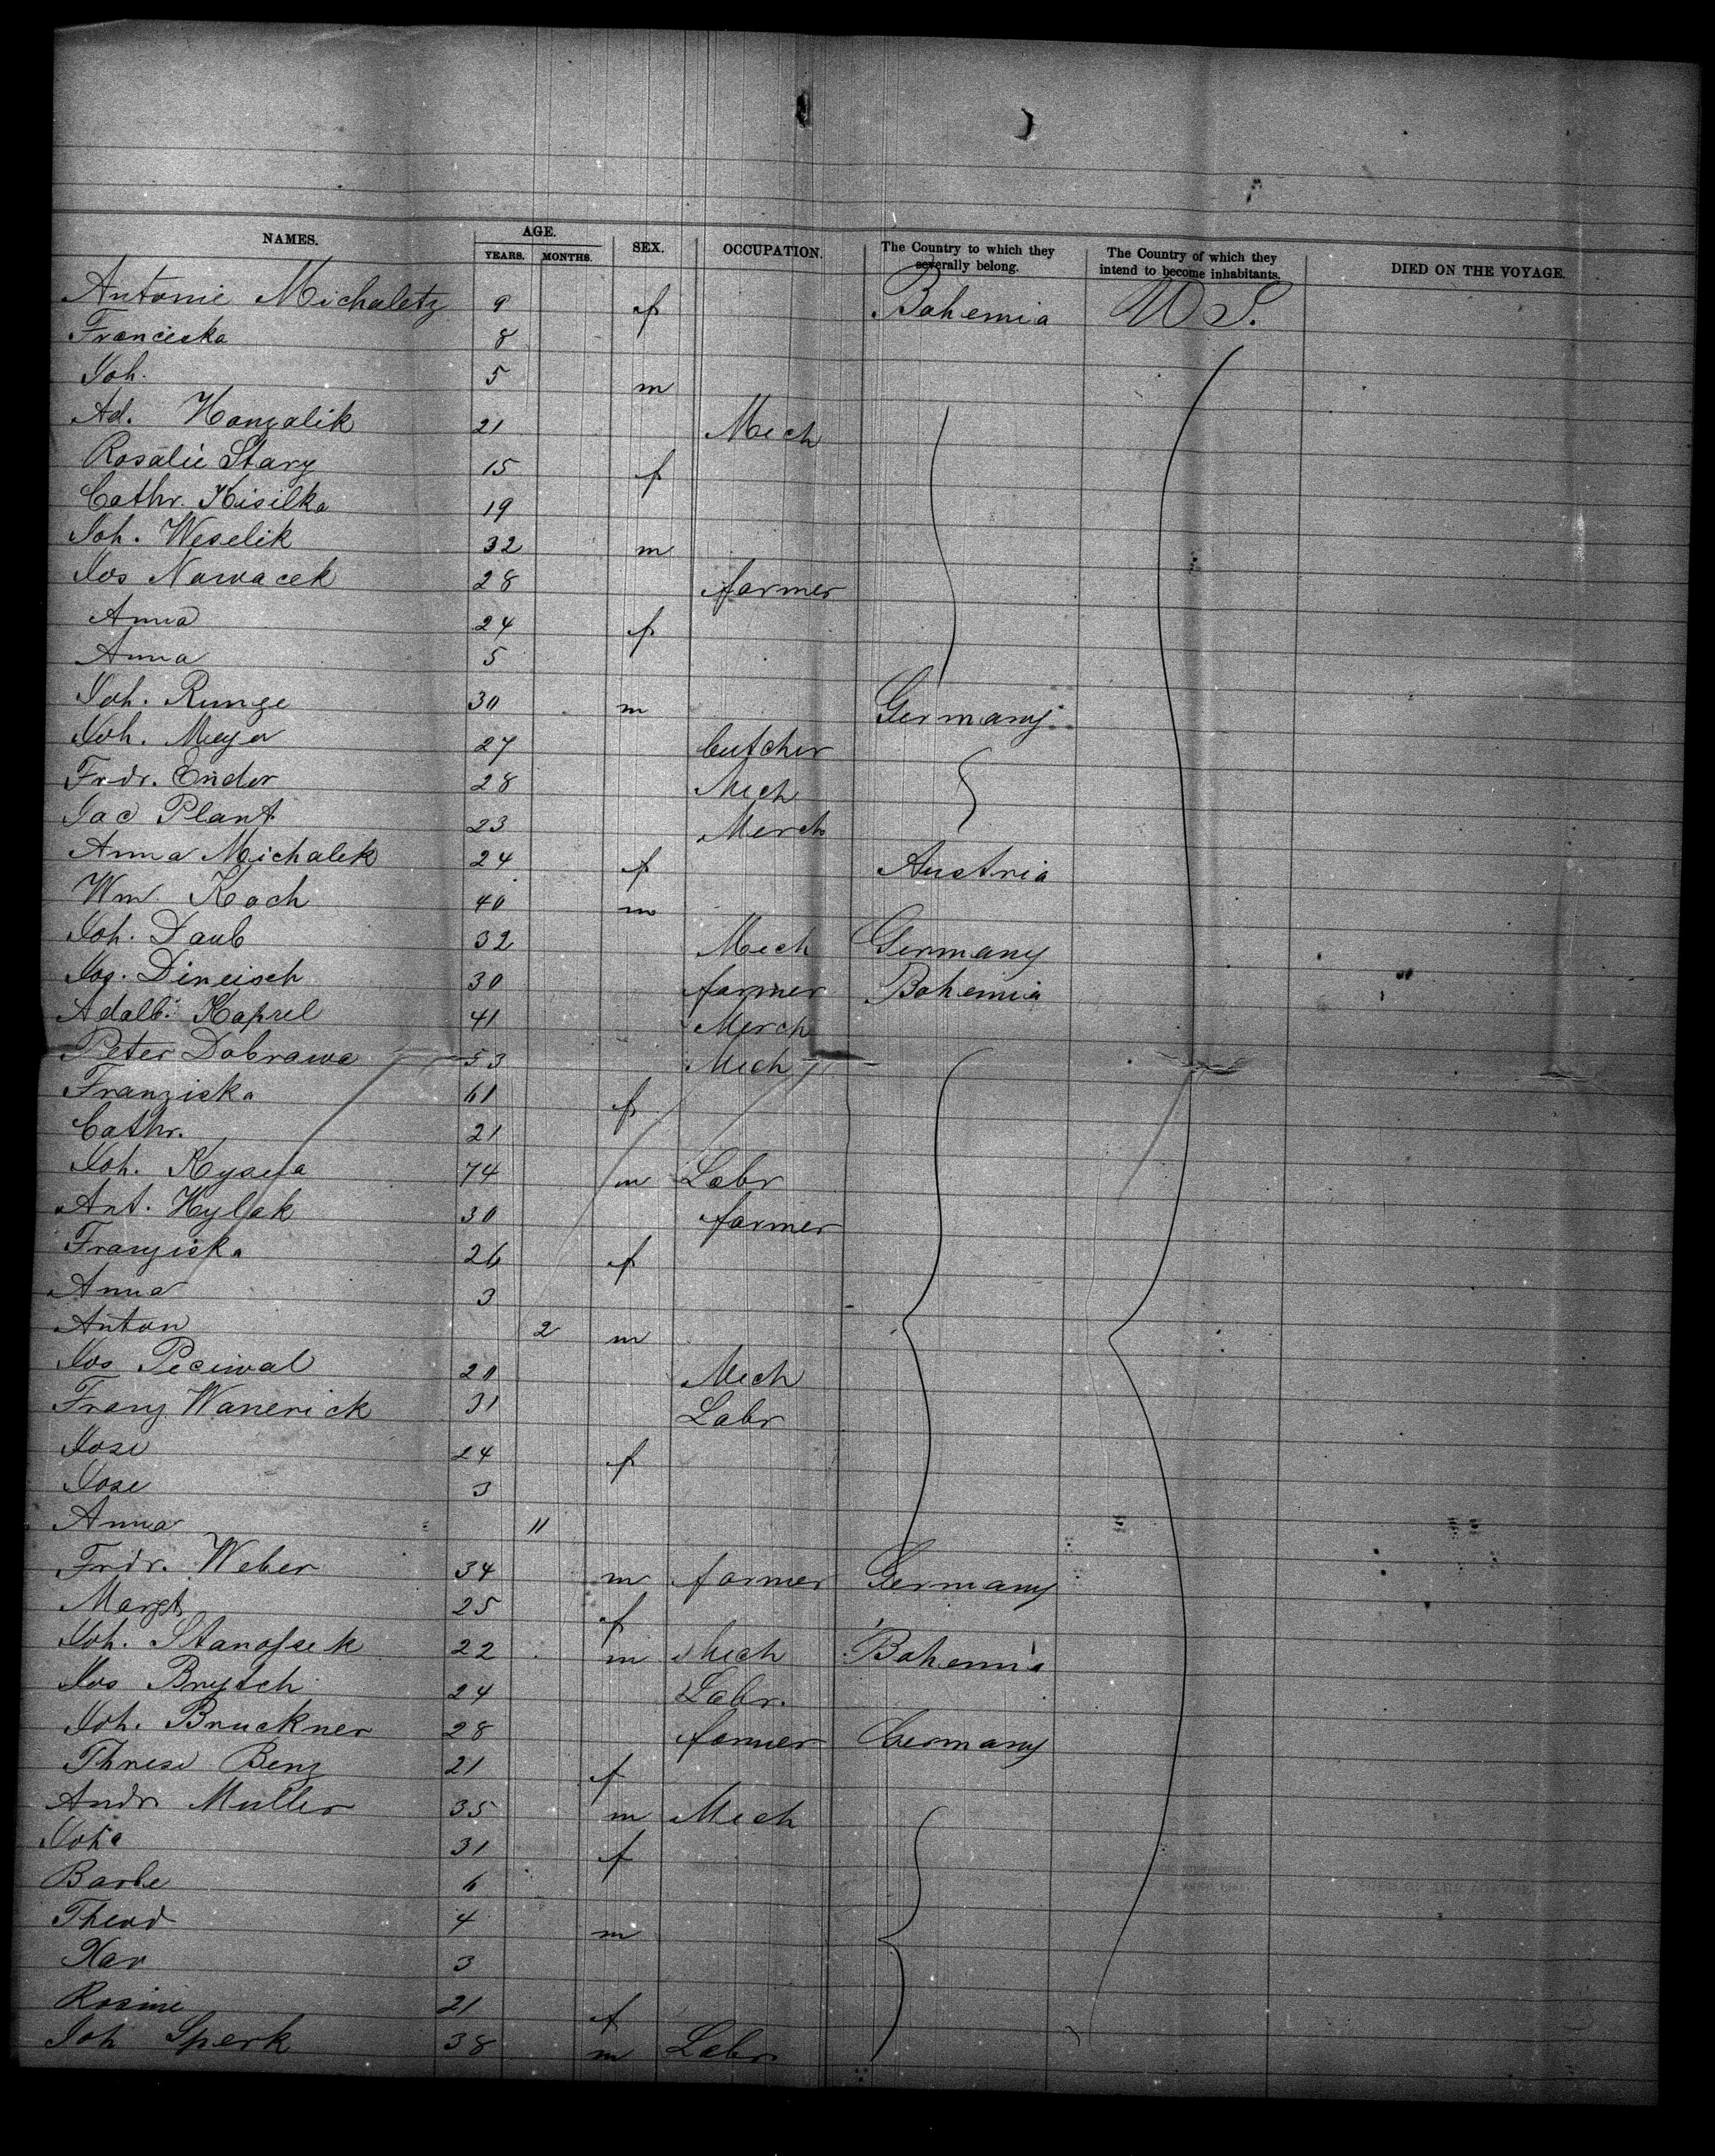 NAMES. AGE. YEARS. MONTHS. SEX. OCCUPATION. The Country to which they severally belong. The Country of which they intend to become inhabitants. DIED ON THE VOYAGE.
Antonie Michaletz 9 f Bohemia U S.
Franciska 8
Joh. 5 m
Ad. Hanzalik 21 Mech
Rosalie Stary 15 f
Cathr. Kisilka 19
Joh. Weselik 32 m
Jos Nawacek 28 farmer
Anna 24 f
Anna 5
Joh. Runge 30 m Germany
Joh. Meyer 27 butcher
Frdr. Ender 28 Mech
Jac Plant 23 Merch
Anna Michalek 24 f Austria
Wm. Koch 40 m
Joh. Daub 32 Mech Germany
Jos. Dineisch 30 farmer Bohemia
Adalb. Kaprel 41 Merch
Peter Dobrawa 53 Mech
Franziska 61 f
Cathr. 21
Joh. 74 m Labr
Ant. Hylak 30 farmer
Franziska 26 f
Anna 3
Anton 2 m
Jos Peciwal 20 Mech
Franz Wanerick 31 Labr
Jose 24 f
Jose 3
Anna 11
Frdr. Weber 34 m farmer Germany
Margt 25 f
Joh. 22 m Mech Bohemia
Jos 24 Labr.
Joh. Bruckner 28 farmer Germany
Threse Benz 21 f
Andr Muller 35 m Mech
31 f
Barbe 6
Theod 4 m
Xav 3
Rosine 21 f
Joh Sperk 38 m Labr